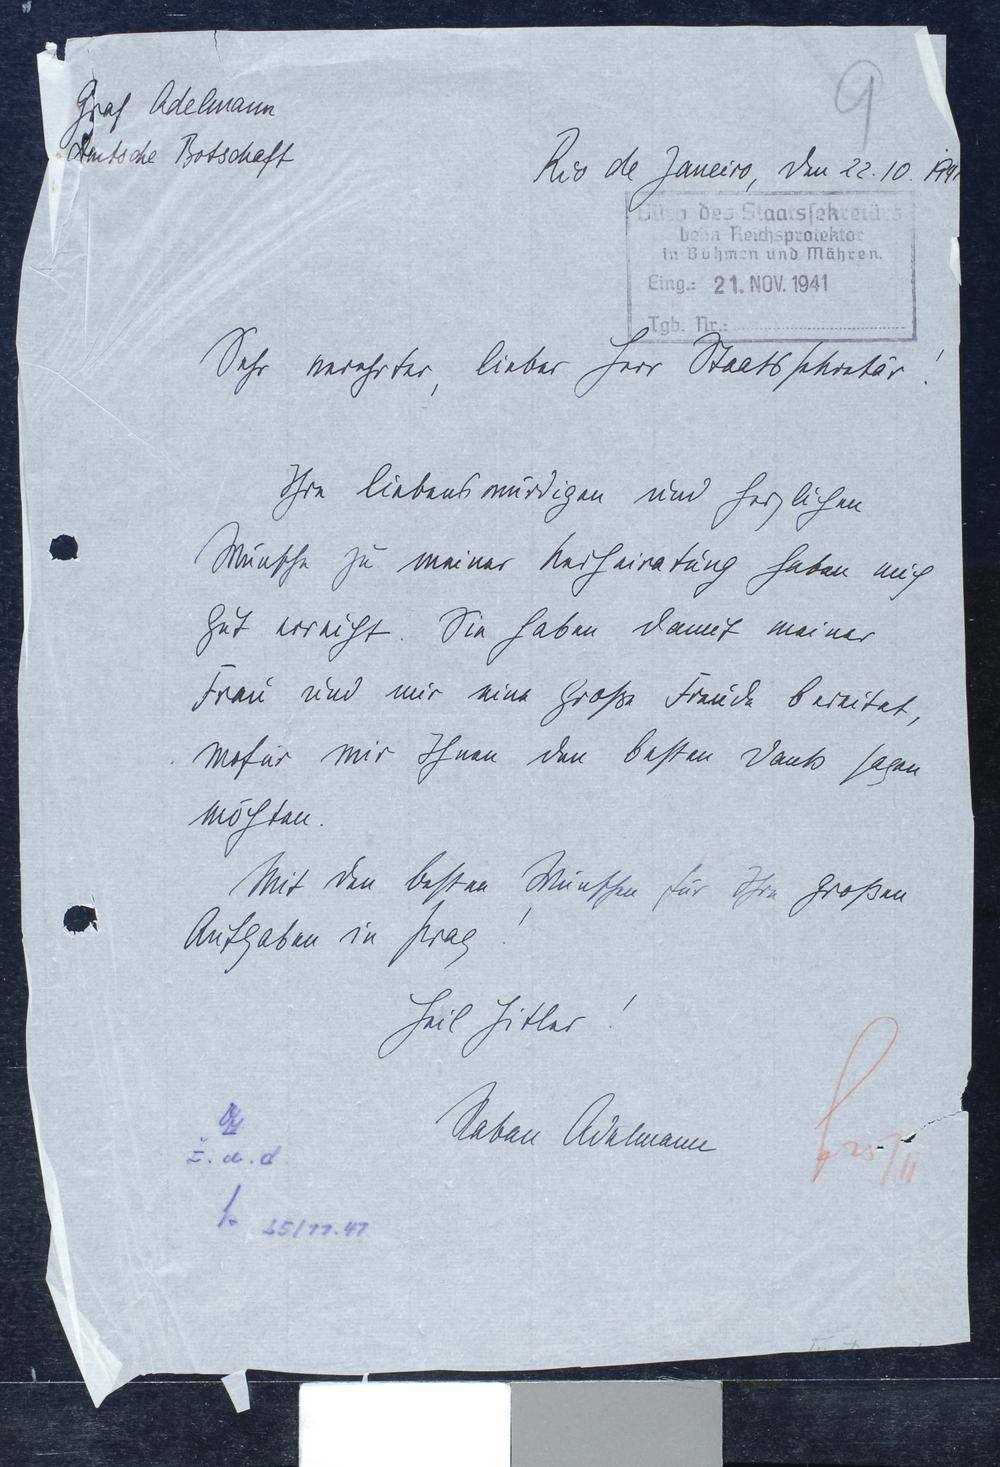 9
Graf Adelmann
Deutsche Botschaft
Rio de Janeiro, den 22.10. 1941
Büro des Staatssekretärs
beim Reichsprotektor
in Böhmen und Mähren.
Eing.: 21. NOV. 1941
Tgb. Nr.:
Sehr verehrter, lieber Herr Staatssekretär!
Ihre liebenswürdigen und herzlichen
Wünsche zu meiner Verheiratung haben mich
gut erreicht. Sie haben damit meiner
Frau und mir eine große Freude bereitet,
wofür wir Ihnen den besten Dank sagen
möchten.
Mit den besten Wünschen für Ihre großen
Aufgaben in Prag!
Heil Hitler!
Adelmann
z. d. A
25/11.41